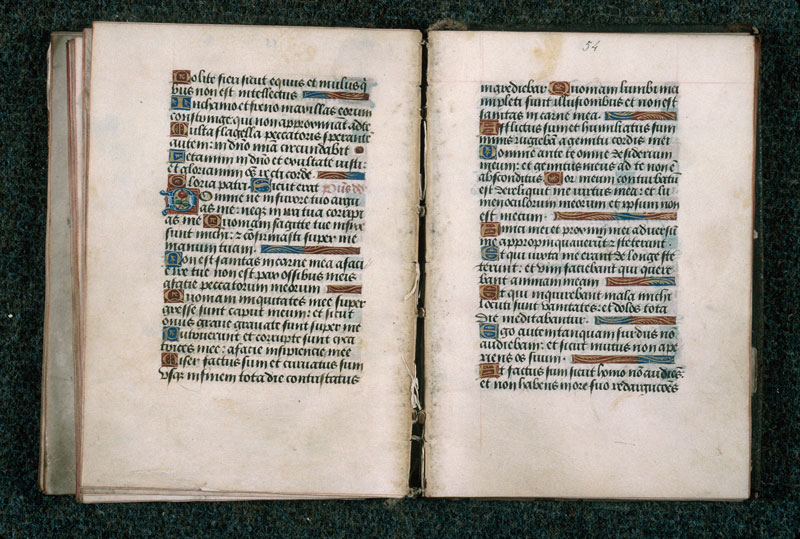 Nolite fieri sicut equus et mulus q̄
bus non est intellectus
In chamo et freno maxillas eorum
constringe: qui non approximāt ad te
Multa flagella peccatoris sperante
autem in dño mīa circundabit
Letamini in dño et exultate iusti:
et gloriamini oēs recti corde
Gloria patri. Sicut erat
Domine ne in furore tuo argu
as me: neqз in ira tua corripi
as me Quoniam sagitte tue infixe
sunt michi: et confirmasti super me
manum tuam
Non est sanitas in carne mea a faci
e ire tue non est pax ossibus meis
a facie peccatorum meorum
Quoniam iniquitates mee super
gresse sunt caput meum: et sicut
onus grave gravate sunt super me
Putruerunt et corrupte sunt cica
trices mee: a facie insipiencie mee
Miser factus sum et curvatus sum
usqз in finem tota die contristatus
54
ingrediebar Quoniam lumbi mei
impleti sunt illusionibus et non est
sanitas in carne mea.
Afflictus sum et humiliatus sum
nimis rugiebā a gemitu cordis mei
Domine ante te omne desiderium
meum: et gemitus meus ad te non ē
absconditus Cor meum conturbatū
est dereliquit me virtus mea: et lu
men oculorum meorum et ipsum non
est mecum.
Amici mei et proximi mei adversū
me appropinquaverūt et steterunt.
Et qui iuxta me erant de longe ste
terunt: et vim faciebant qui quere
bant animam meam
Et qui inquirebant mala michi
locuti sunt vanitates: et dolos tota
die meditabantur.
Ego autem tanquam surdus no
audiebam: et sicut mutus non ape
riens os suum.
Et factus sum sicut homo nō audiēs:
et non habens in ore suo redargucōes